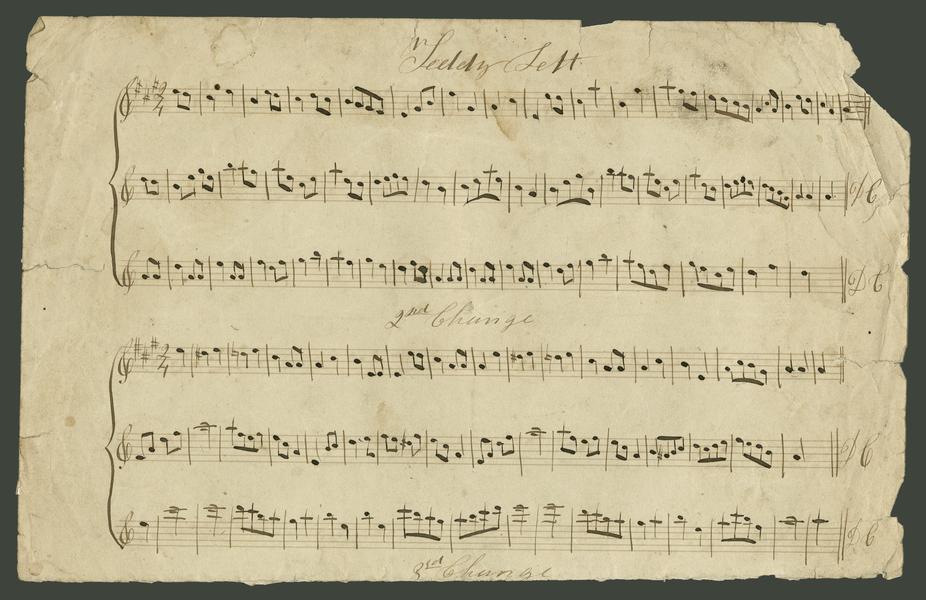 Teddy Sett
2/4
D C
D C
2nd Change
2/4
D C
D C
3rd Change